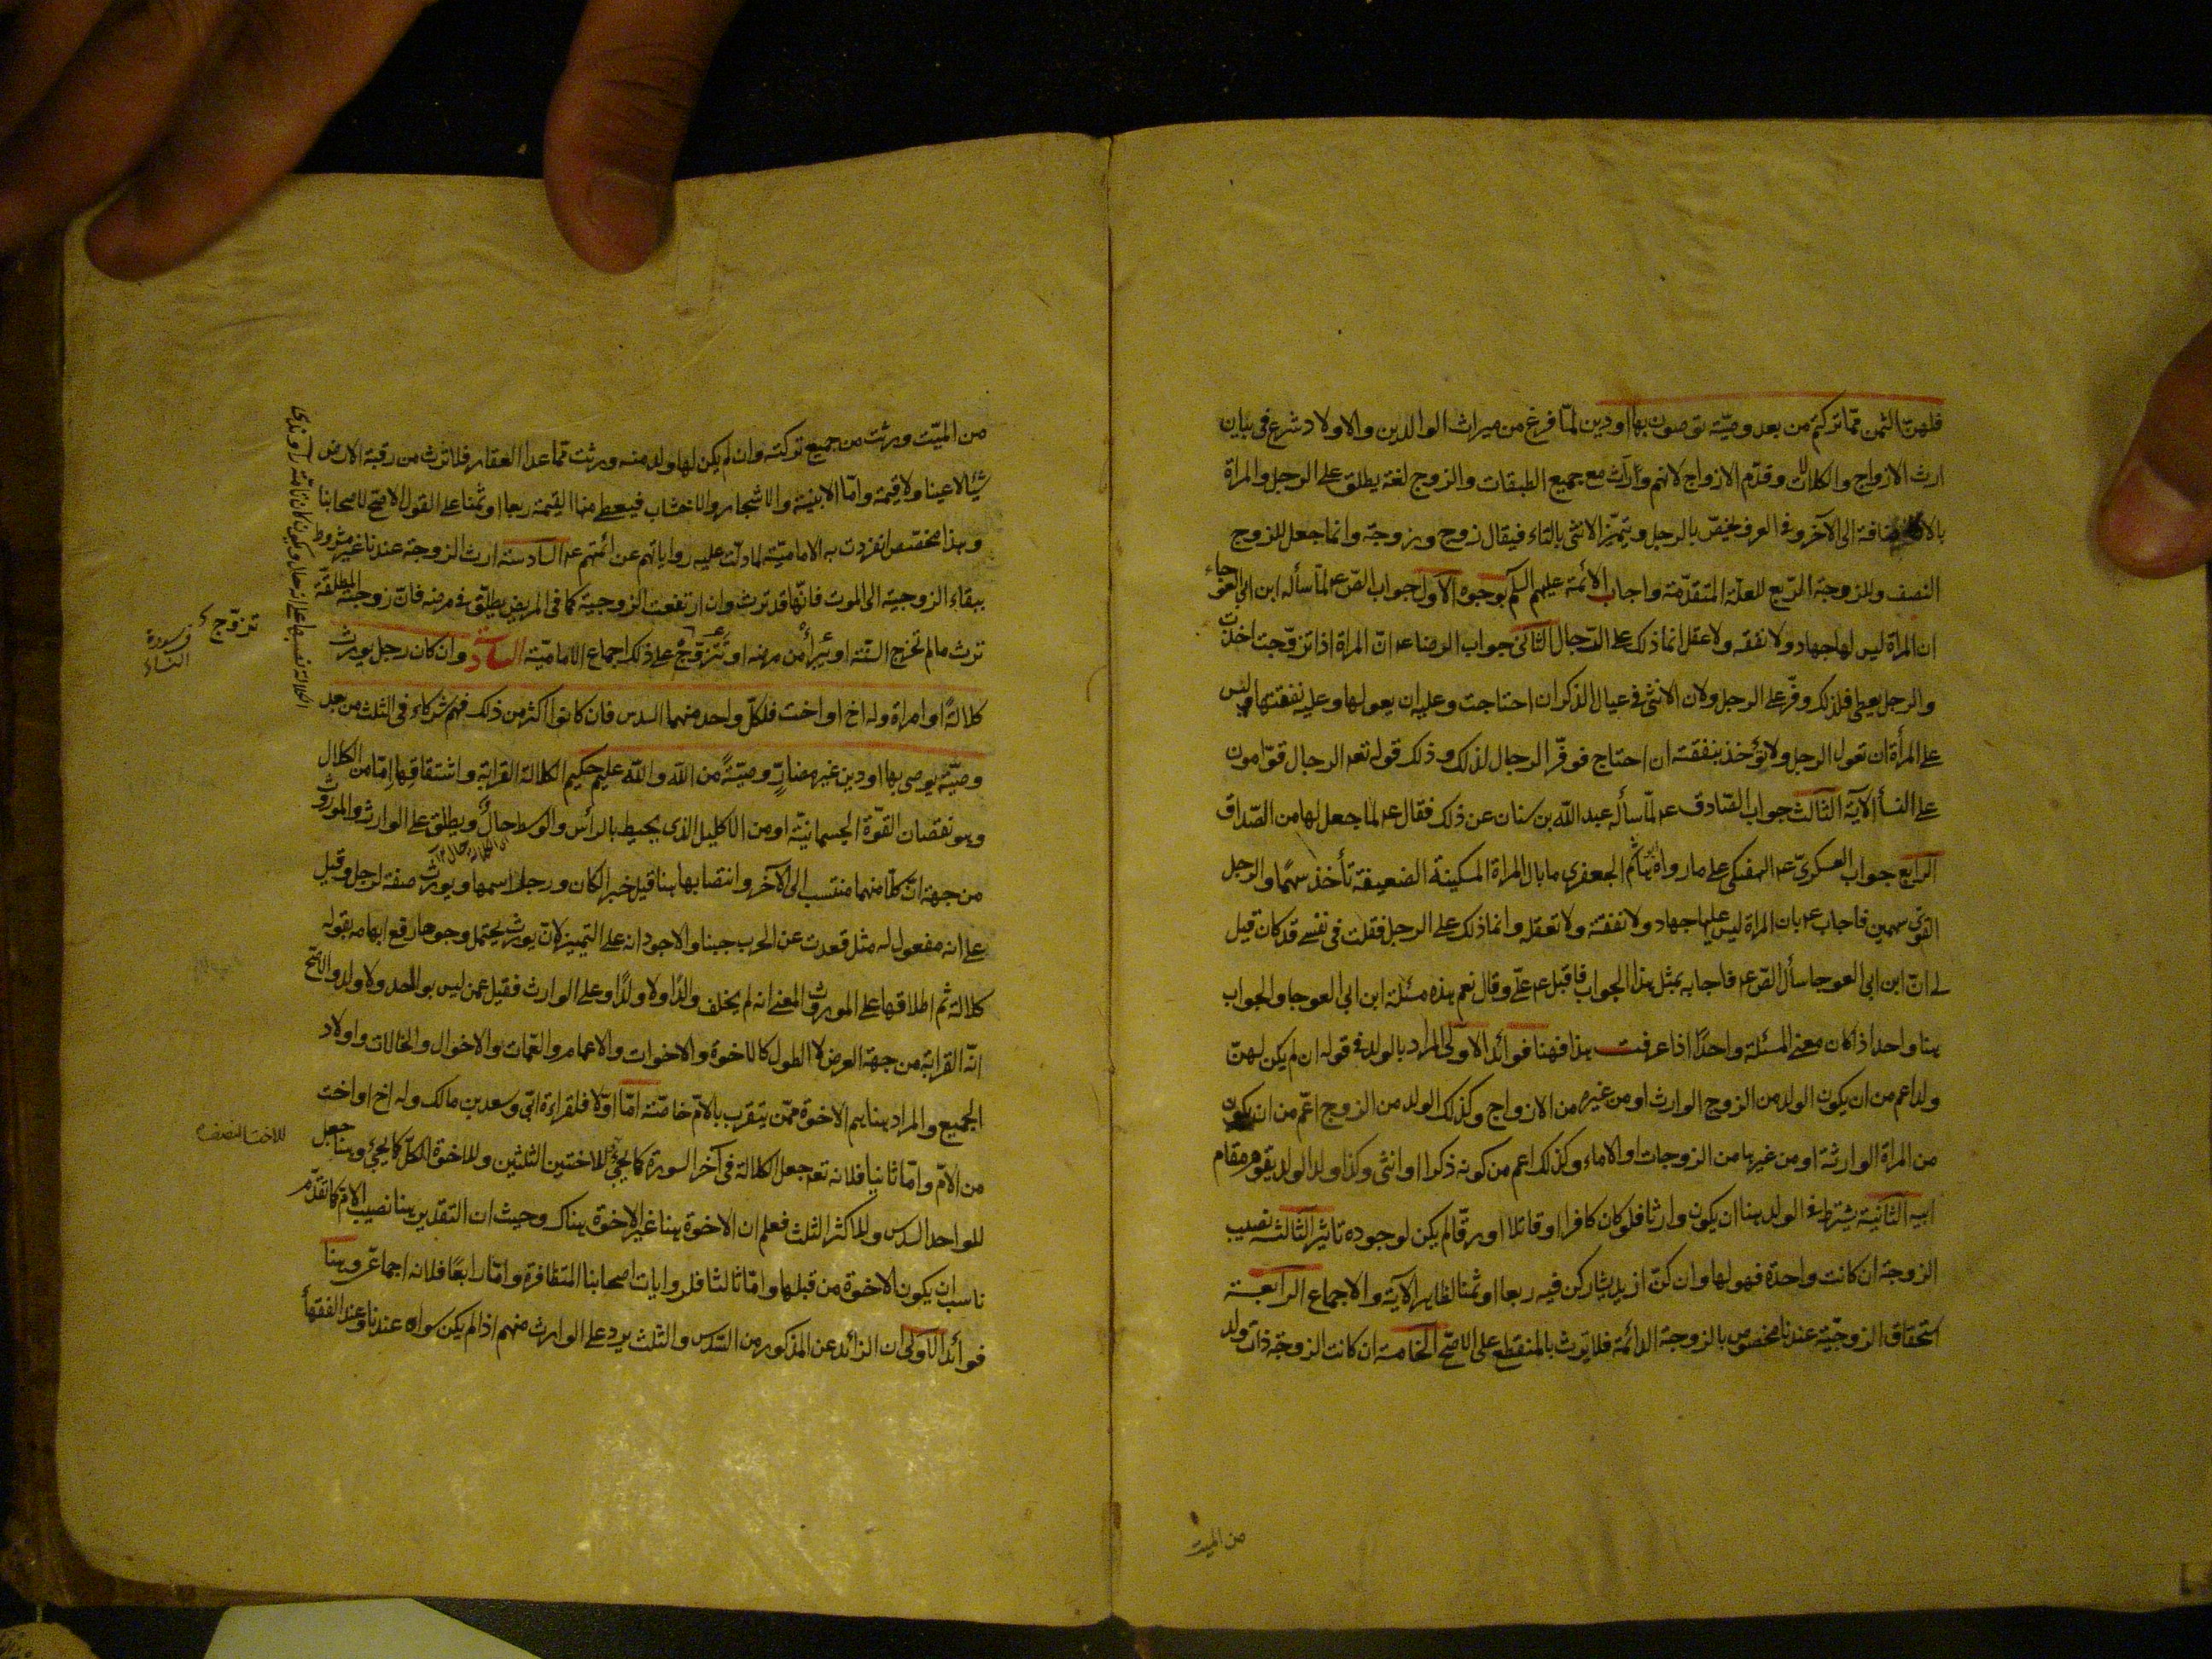 فلهن الثمن مما تركتم من بعد وصية توصون بها او دين لما فرغ من ميراث الوالدين والاولاد شرع في بيان
ارث الازواج والكلالات وقدم الازواج لانهم وارث مع جميع الطبقات والزوج لغة يطلق على الرجل والمراة
بالاضافة الى الآخر وفي العرف يختص بالرجل ويتميز الانثى بالتاء فيقال زوج وزوجة وانما جعل للزوج
النصف وللزوجة الربع للعلة المتقدمة واجاب الائمة عليهم السلم بوجوه الاول جواب الص عم لما سأله ابن ابي العوجاء
ان المراة ليس لها جهاد ولا نفقه ولا عقل انما ذلك على الرجال الثاني جواب الرضا عم ان المراة اذا تزوجت اخذت
والرجل يعطي فلذلك وفر على الرجل ولان الانثى في عيال الذكر ان احتاجت وعليه ان يعولها وعليه نفقتها وليس
على المرأة ان تعول الرجل ولا تؤخذ بنفقته ان احتاج فوفر الرجال لذلك وذلك قوله تعه الرجال قوامون
على النسأ الآية الثالث جواب الصادق عم لما سأله عبد الله بن سنان عن ذلك فقال عم لما جعل لها من الصداق
الرابع جواب العسكري عم الهفكي على ما رواه هاشم الجعفري ما بال المراة المسكينة الضعيفة تأخذ سهما والرجل
القوي سهمين فاجاب عم بان المراة ليس عليها جهاد ولا نفقة ولا تعقل وانما ذلك على الرجل فقلت في نفسي قد كان قيل
لي ان ابن ابي العوجا سأل الص عم فاجابه بمثل هذا الجواب فاقبل عم علي وقال نعم هذه مسئلة ابن ابي العوجا والجواب
هنا واحد اذ كان معنى المسئلة واحدا اذا عرفت هذا فهنا فوائد الاولى المراد بالولد في قوله ان لم يكن لهن
ولد اعم من ان يكون الولد من الزوج الوارث او من غيره من الازواج وكذلك الولد من الزوج اعم من ان يكون
من المراة الوارثة او من غيرها من الزوجات او الاماء وكذلك اعم من كونه ذكرا او انثى وكذا ولد الولد يقوم مقام
ابيه الثانية يشترط في الولد هنا ان يكون وارثا فلو كان كافرا او قاتلا او رقا لم يكن لوجوده تاثير الثالثة نصيب
الزوجة ان كانت واحدة فهو لها وان كن ازيد يشاركن فيه ربعا او ثمنا لظاهر الآية والاجماع الرابعة
استحقاق الزوجية عندنا مخصوص بالزوجة الدائمة فلا يورث بالمنقطع على الاصح الخامسة ان كانت الزوجة ذات ولد
من الميت
من الميت ورثت من جميع تركته وان لم يكن لها ولد منه ورثت مما عدا العقار فلا ترث من رقبة الارض
شيئا لا عينا ولا قيمة واما الابنية والاشجار والاخشاب فيعطى منها القيمة ربعا او ثمنا على القول الاصح لاصحابنا
وهذا مختص انفردت به الامامية لما دلت عليه رواياتهم عن ائمتهم عم السادسة ارث الزوجة عندنا غير مشروط
ببقاء الزوجية الى الموت فانها قد ترث وان ارتفعت الزوجية كما في المريض يطلق في مرضه فان زوجته المطلقة
ترث ما لم تخرج السنة او يبرأ من مرضه او تتزوج على ذلك اجماع الامامية السادسة وان كان رجل يورث
كلالة او امراة وله اخ او اخت فلكل واحد منهما السدس فان كانوا اكثر من ذلك فهم شركاء في الثلث من بعد
وصية يوصى بها او دين غير مضار وصية من الله والله عليم حكيم الكلالة القرابة واشتقاقها اما من الكلال
وهو نقصان القوة الجسمانية او من الاكليل الذي يحيط بالرأس والوسط خال ويطلق على الوارث والموروث
من جهة ان كلا منهما منتسب الى الآخر وانتصابها هنا قيل خبر الكان ورجل اسمها ويورث صفة لرجل وقيل
على انه مفعول له مثل قعدت عن الحرب جبنا والاجود انه على التمييز لان يورث يحتمل وجوها رفع ابهامه بقوله
كلالة ثم اطلاقها على الموروث المعنى انه لم يخلف والدا ولا ولدا وعلى الوارث فقيل عمن ليس بوالد ولا ولد والاصح
انه القرابة من جهة العرض لا الطول كالاخوة والاخوات والاعمام والعمات والاخوال والخالات واولاد
الجميع والمراد هنا هم الاخوة ممن يتقرب بالام خاصة اما اولا فلقراءة ابي وسعد بن مالك وله اخ او اخت
من الام واما ثانيا فلانه تعه جعل الكلالة في آخر السورة كما يجئ للاختين الثلثين وللاخوة الكل كما يجئ وهنا جعل
للواحد السدس وللاكثر الثلث فعلم ان الاخوة هنا غير الاخوة هناك وحيث ان التقدير هنا نصيب الام كما تقدم
ناسب ان يكون الاخوة من قبلها واما ثالثا فلروايات اصحابنا المتظافرة واما رابعا فلانه اجماعي وهنا
فوائد الاولى ان الزائد عن المذكور من السدس والثلث يرد على الوارث منهم اذا لم يكن سواه عندنا وعند الفقهأ
تزوج
سورة النساء
للاخت النصف